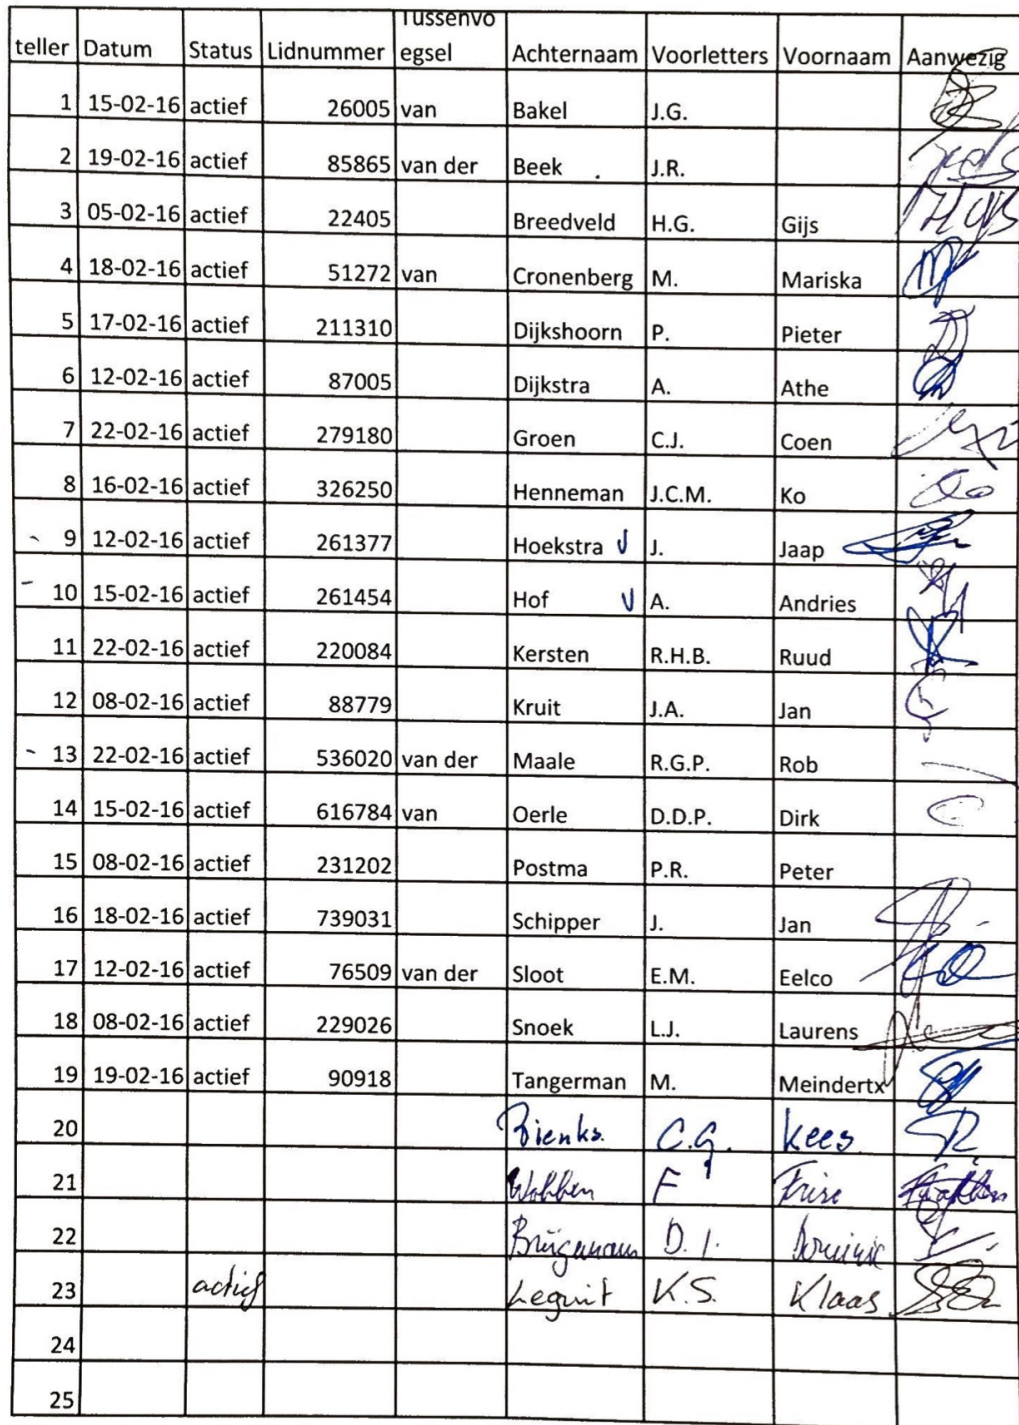 teller Datum Status Lidnummer Tussenvoegsel Achternaam Voorletters Voornaam Aanwezig
1 15-02-16 actief 26005 van Bakel J.G.
2 19-02-16 actief 85865 van der Beek J.R.
3 05-02-16 actief 22405 Breedveld H.G. Gijs
4 18-02-16 actief 51272 van Cronenberg M. Mariska
5 17-02-16 actief 211310 Dijkshoorn P. Pieter
6 12-02-16 actief 87005 Dijkstra A. Athe
7 22-02-16 actief 279180 Groen C.J. Coen
8 16-02-16 actief 326250 Henneman J.C.M. Ko
9 12-02-16 actief 261377 Hoekstra J. Jaap
10 15-02-16 actief 261454 Hof A. Andries
11 22-02-16 actief 220084 Kersten R.H.B. Ruud
12 08-02-16 actief 88779 Kruit J.A. Jan
13 22-02-16 actief 536020 van der Maale R.G.P. Rob
14 15-02-16 actief 616784 van Oerle D.D.P. Dirk
15 08-02-16 actief 231202 Postma P.R. Peter
16 18-02-16 actief 739031 Schipper J. Jan
17 12-02-16 actief 76509 van der Sloot E.M. Eelco
18 08-02-16 actief 229026 Snoek L.J. Laurens
19 19-02-16 actief 90918 Tangerman M. Meindertx
20 C.G. Kees
21 Wobben F
22 D.I. Dominic
23 actief Leguit K.S. Klaas
24
25